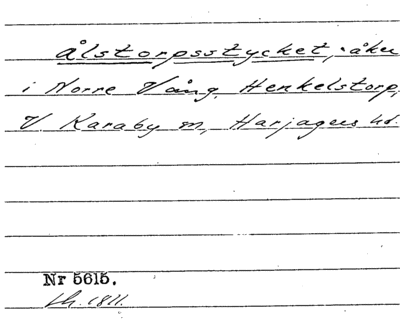 Ålstorpsstycket, åker
i Norre Vång, Henkelstorp,
V Karaby sn, Harjagers hd.
Nr 5615.
Lh. 1811.